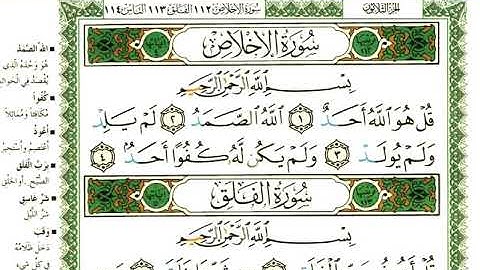 سورة الإخلاص ١١٢ الفلق ١١٣ الناس ١١٤
الجزء الثلاثون
سُورَةُ الإِخْلَاصِ
بِسْمِ اللَّهِ الرَّحْمَٰنِ الرَّحِيمِ
قُلْ هُوَ اللَّهُ أَحَدٌ ١ اللَّهُ الصَّمَدُ ٢ لَمْ يَلِدْ
وَلَمْ يُولَدْ ٣ وَلَمْ يَكُن لَّهُ كُفُوًا أَحَدٌ ٤
سُورَةُ الفَلَقِ
بِسْمِ اللَّهِ الرَّحْمَٰنِ الرَّحِيمِ
اللهُ الصَّمَدُ
هُوَ وَحْدَهُ الَّذِي
يُقْصَدُ فِي الْحَوَائِجِ
كُفُوًا
مُكَافِئًا وَمُمَاثِلًا
أَعُوذُ
أَعْتَصِمُ وَأَسْتَجِيرُ
بِرَبِّ الْفَلَقِ
الصُّبْحِ أَوِ الْخَلْقِ
شَرِّ غَاسِقٍ
شَرِّ اللَّيْلِ
وَقَبَ
دَخَلَ ظَلَامُهُ
فِي كُلِّ شَيْءٍ